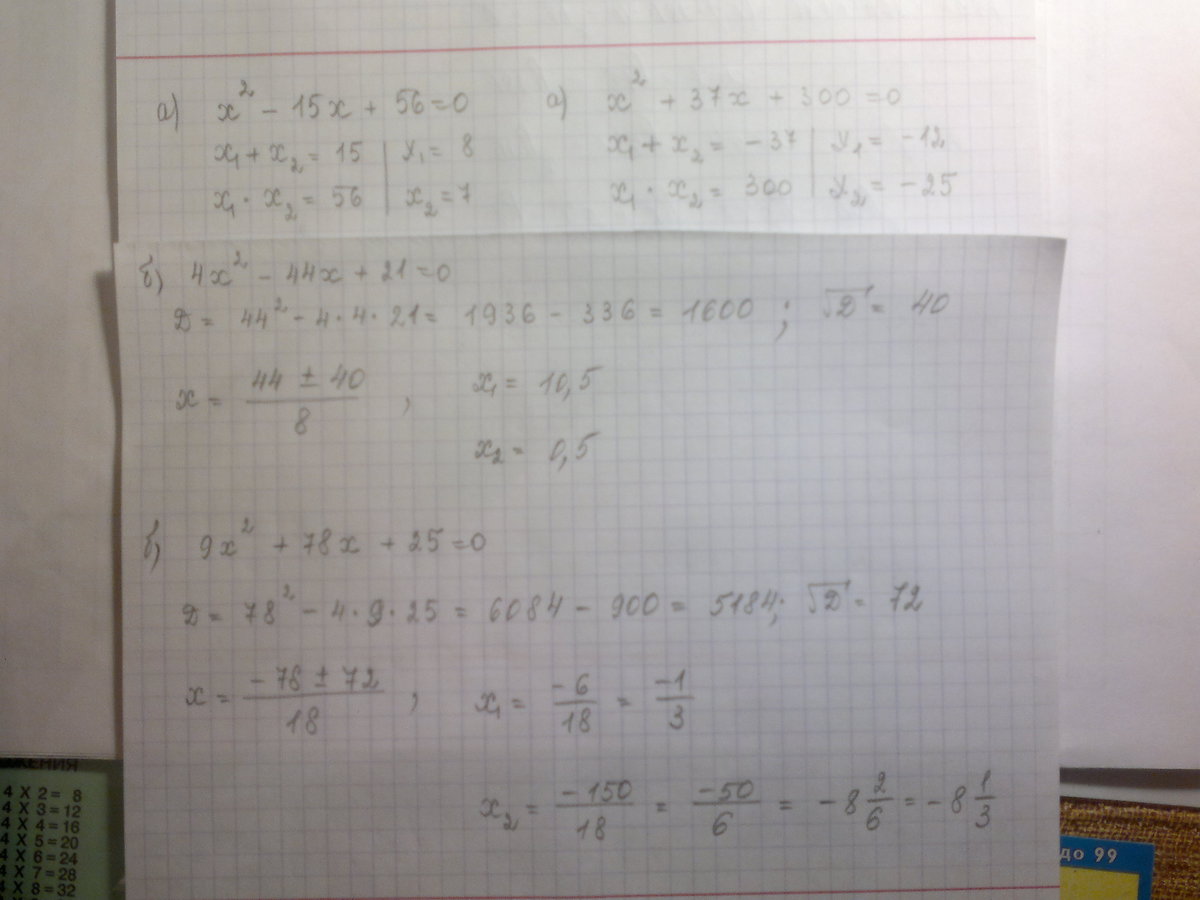 а) x² - 15x + 56 = 0
x₁ + x₂ = 15 | x₁ = 8
x₁ · x₂ = 56 | x₂ = 7
а) x² + 37x + 300 = 0
x₁ + x₂ = -37 | x₁ = -12
x₁ · x₂ = 300 | x₂ = -25
б) 4x² - 44x + 21 = 0
D = 44² - 4·4·21 = 1936 - 336 = 1600 ; √D = 40
x = (44 ± 40)/8 , x₁ = 10,5
x₂ = 0,5
б) 9x² + 78x + 25 = 0
D = 78² - 4·9·25 = 6084 - 900 = 5184; √D = 72
x = (-78 ± 72)/18 ; x₁ = -6/18 = -1/3
x₂ = -150/18 = -50/6 = -8 2/6 = -8 1/3
4 X 2 = 8
4 X 3 = 12
4 X 4 = 16
4 X 5 = 20
4 X 6 = 24
4 X 7 = 28
4 X 8 = 32
до 99